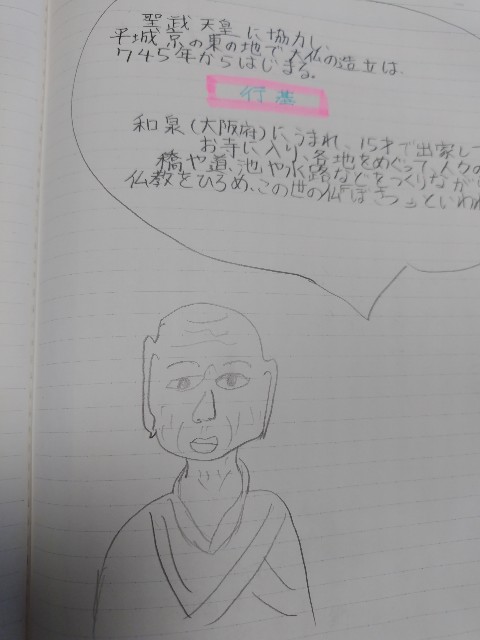 聖武天皇に協力し、
平城京の東の地で大仏の造立は、
745年からはじまる。
行基
和泉(大阪府)にうまれ、15才で出家して
お寺に入り、各地をめぐって人々の
橋や道、池や水路などをつくりながら
仏教をひろめ、この世の仏「ぼさつ」といわれ